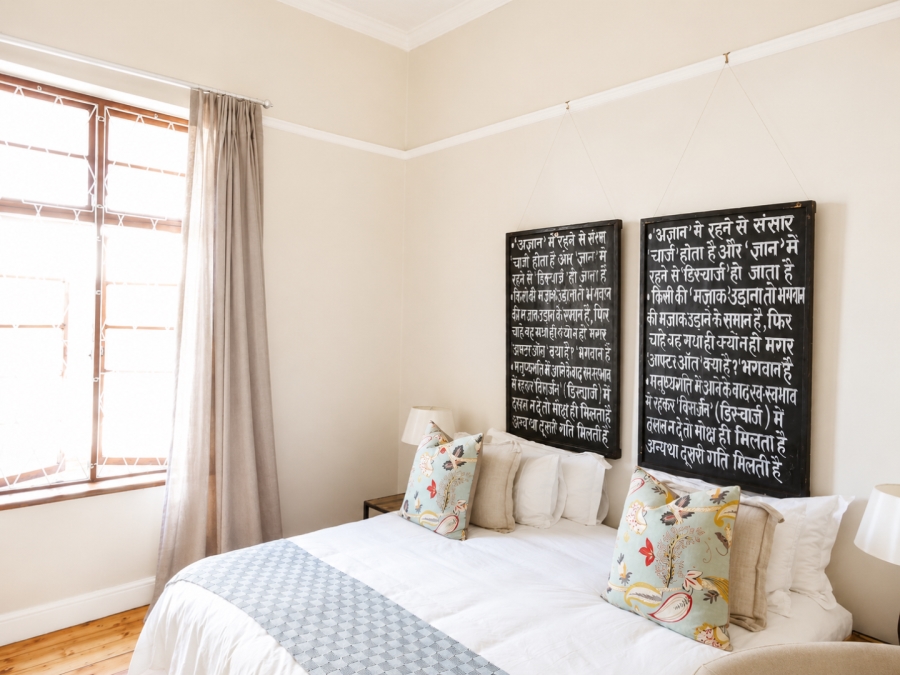 'अज्ञान' में रहने से संसार
चार्ज होता है और 'ज्ञान' में
रहने से 'डिस्चार्ज' हो जाता है
• किसी की 'मज़ाक' उड़ाना तो भगवान
की मजाक उड़ाने के समान है, फिर
चाहे वह गधा ही क्यों न हो मगर
आफ्टर ऑल क्या है? भगवान है
• मनुष्यगति में आने के बाद
में रहकर 'विसर्जन' (डिस्चार्ज) में
दखल न दे तो मोक्ष ही मिलता है
अन्यथा दूसरी गति मिलती है
• 'अज्ञान' मे रहने से संसार
चार्ज होता है और 'ज्ञान' में
रहने से 'डिस्चार्ज' हो जाता है
• किसी की 'मज़ाक' उड़ाना तो भगवान
की मजाक उड़ाने के समान है, फिर
चाहे वह गधा ही क्यों न हो मगर
'आफ्टर ऑल' क्या है? 'भगवान है
• मनुष्यगति में आने के बाद स्व-स्वभाव
में रहकर 'विसर्जन' (डिस्चार्ज) में
दखल न दे तो मोक्ष ही मिलता है
अन्यथा दूसरी गति मिलती है